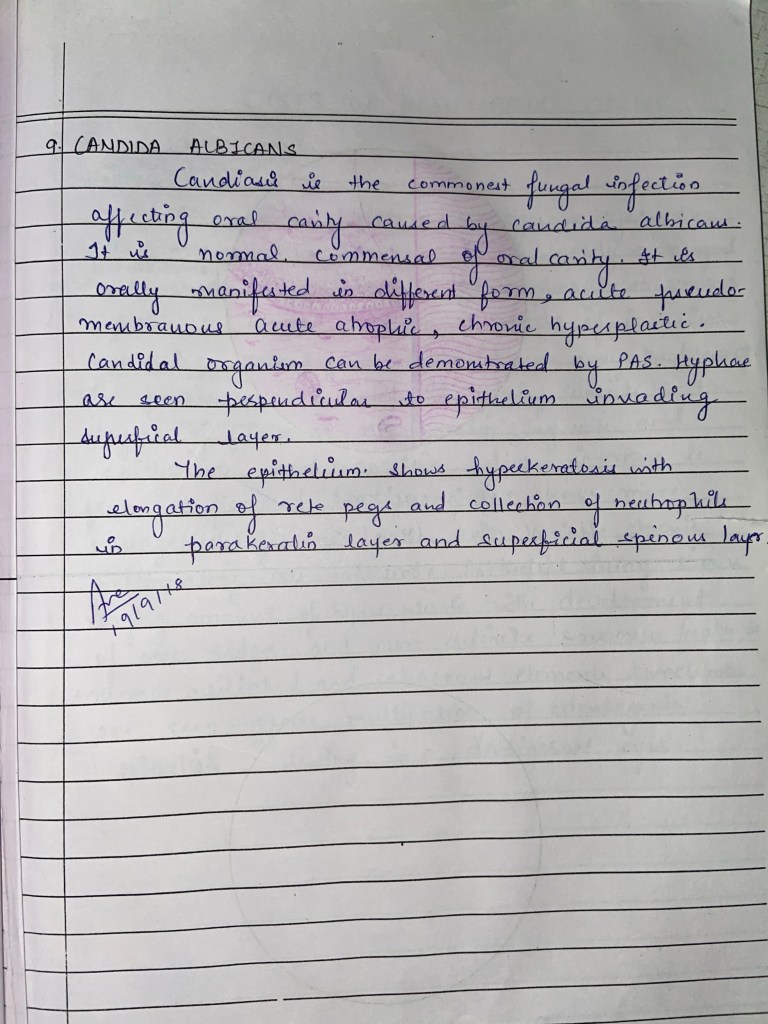 9. CANDIDA ALBICANS
Candiasis is the commonest fungal infection
affecting oral cavity caused by candida albicans.
It is normal commensal of oral cavity. It is
orally manifested in different form, acute pseudo-
membranous acute atrophic, chronic hyperplastic.
Candidal organism can be demonstrated by PAS. Hyphae
are seen perpendicular to epithelium invading
superfical layer.
The epithelium shows hyperkeratosis with
elongation of rete pegs and collection of neutrophils
in parakeratin layer and superficial spinous layer.
19/9/18